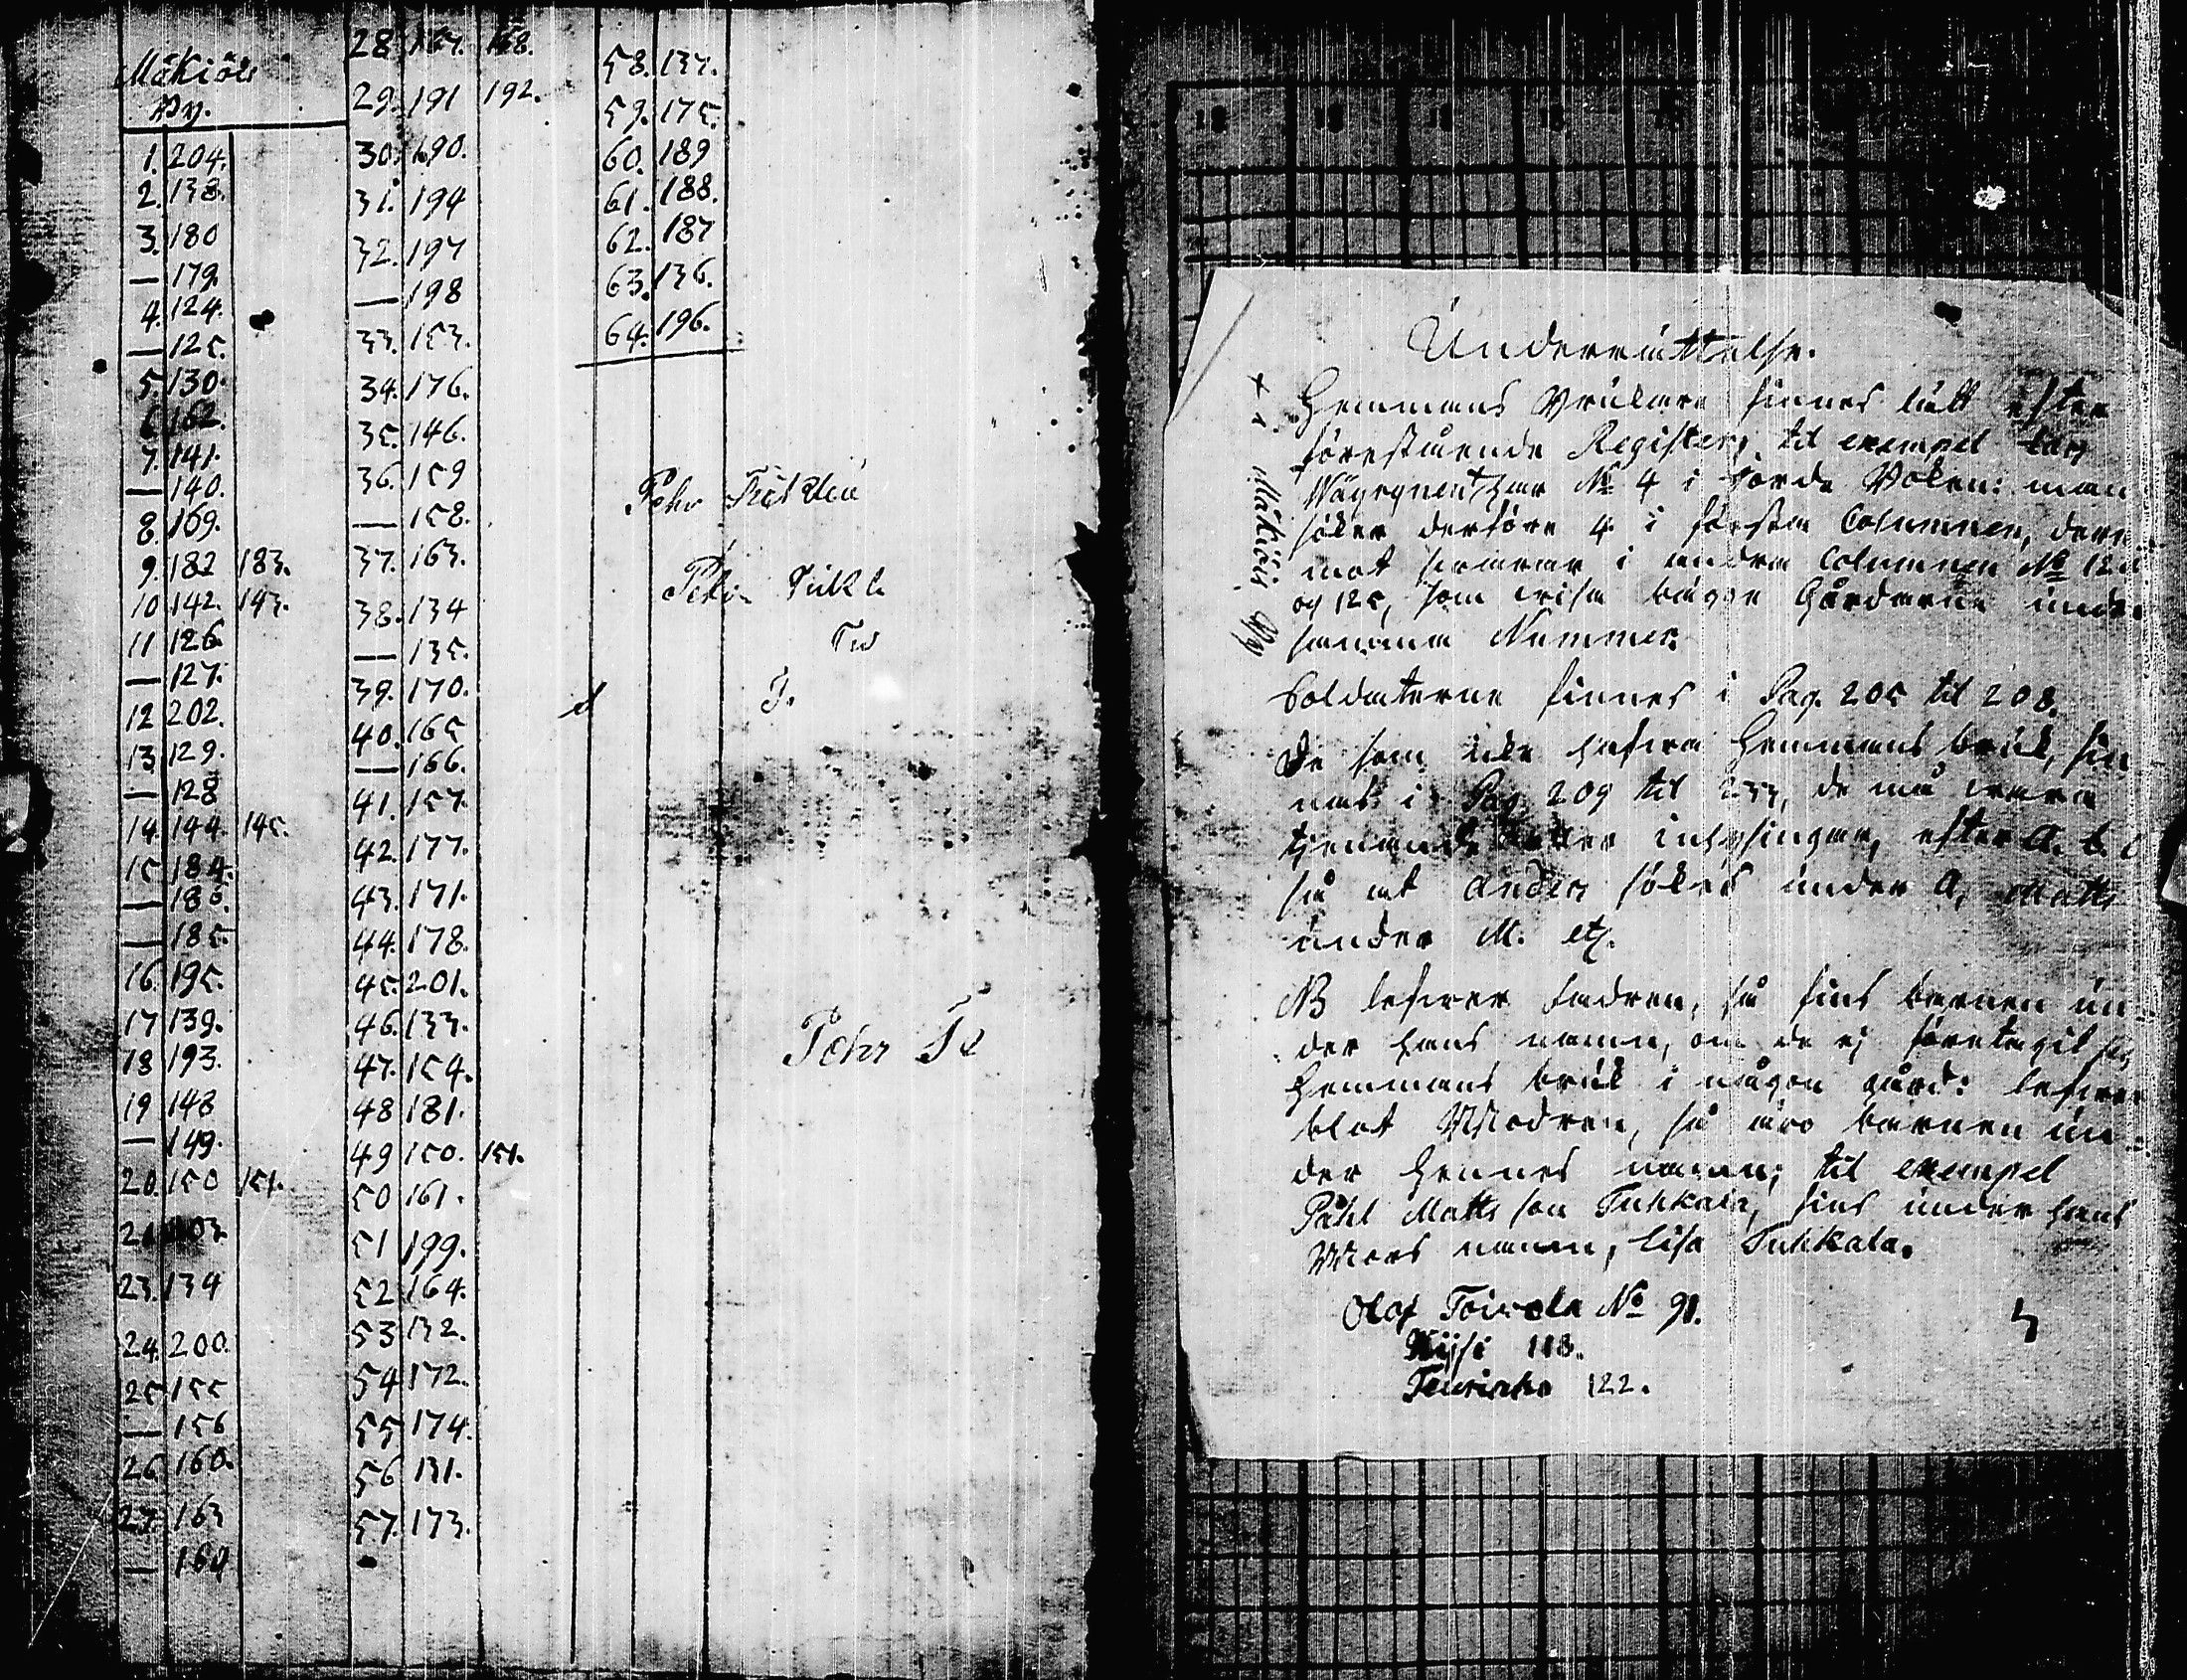 Mäkiöis
By.
1. 204.
2. 138.
3. 180
— 179.
4. 124.
— 125.
5. 130.
6. 162.
7. 141.
— 140.
8. 169.
9. 182 183.
10 142. 143.
11 126
— 127.
12 202.
13. 129.
— 128
14. 144. 145.
15 184.
— 186.
— 185.
16. 195.
17 139.
18 193.
19 148
— 149.
20. 150 151.
23. 134
24. 200.
25 155
— 156
26. 160.
27. 163
28 168.
29. 191 192.
30. 190.
31. 194
32. 197
— 198
33. 153.
34. 176.
35. 146.
36. 159
— 158.
37. 163.
38. 134
— 135.
39. 170.
40. 165
— 166.
41. 157.
42. 177.
43. 171.
44. 178.
45. 201.
46. 133.
47. 154.
48 181.
49 150. 151.
50 161.
51 199.
52 164.
53 132.
54 172.
55 174.
56 131.
57. 173.
58. 137.
59. 175.
60. 189
61. 188.
62. 187
63. 136.
64. 196.
Pehr
Pehr
Tu
T.
Pehr Tu
Underrättelse.
Hemmans Brukare finnes lätt efter
förestående Register, til exempel
har No 4 i Jorde Boken: man
söker derföre 4 i första Columnen, der
mot svarar i andra Columnen No 124
og 125, som visa bägge Gårdarne under
samma Nummer.
Soldaterne finnes i Pag. 205 til 208.
De som icke hafva Hemmans bruk, fin
nas i Pag 209 til 233, de må vara
tjenande eller inhysingar, efter A. B. C
så at Anders sökes under A, Matts
under M. etc.
NB lefver Fadren, så fins barnen un-
der hans namn, om de ej företagit sig
Hemmans bruk i någon gård: lefver
blot Modren, så äro barnen un-
der hennes namn; til exempel
Påhl Matts son Tuhkala, fins under hans
Mors namn, Lisa Tuhkala.
Olof Toivola No 91.
118.
122.
Mäkiöis By